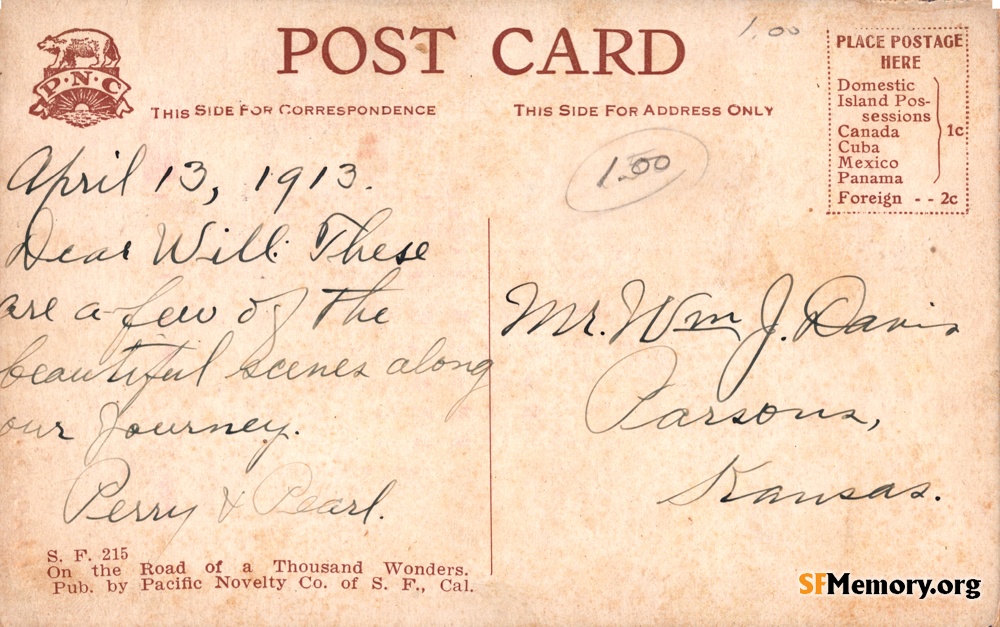 POST CARD
P·N·C
THIS SIDE FOR CORRESPONDENCE
THIS SIDE FOR ADDRESS ONLY
1.00
PLACE POSTAGE
HERE
Domestic
Island Pos-
sessions
Canada
Cuba
Mexico
Panama
1c
Foreign - - 2c
1.00
April 13, 1913.
Dear Will: These
are a few of the
beautiful scenes along
our Journey.
Perry & Pearl.
Mr. Wm J. Davis
Parsons,
Kansas.
S. F. 215
On the Road of a Thousand Wonders.
Pub. by Pacific Novelty Co. of S. F., Cal.
SFMemory.org